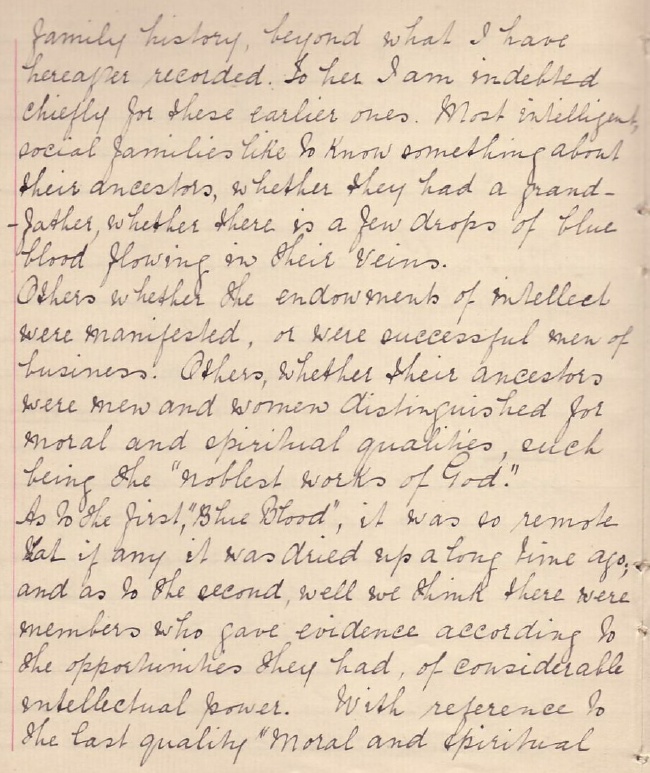 family history, beyond what I have
hereafter recorded. To her I am indebted
chiefly for these earlier ones. Most intelligent,
social families like to know something about
their ancestors, whether they had a grand-
-father, whether there is a few drops of blue
blood flowing in their veins.
Others whether the endowments of intellect
were manifested, or were successful men of
business. Others, whether their ancestors
were men and women distinguished for
moral and spiritual qualities, such
being the "noblest works of God".
As to the first, "Blue Blood", it was so remote
that if any it was dried up a long time ago;
and as to the second, well we think there were
members who gave evidence according to
the opportunities they had, of considerable
intellectual power. With reference to
the last quality "Moral and spiritual